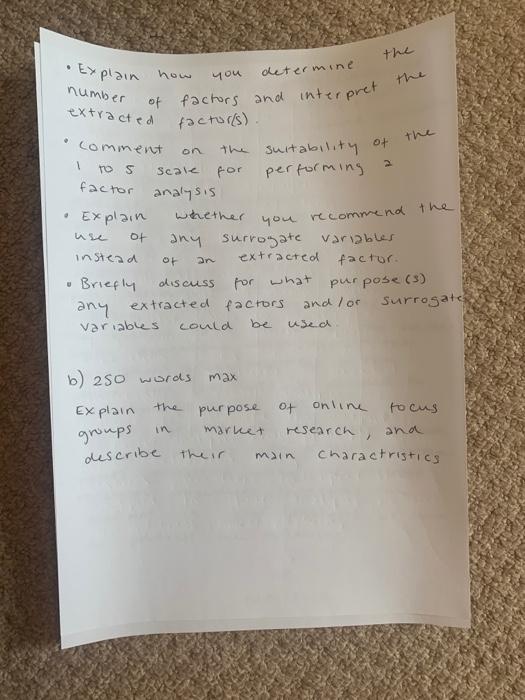 • Explain how you determine the
number of factors and interpret the
extracted factor(s).
• Comment on the suitability of the
1 to 5 scale for performing a
factor analysis
• Explain whether you recommend the
use of any surrogate variables
instead of an extracted factor.
• Briefly discuss for what purpose(s)
any extracted factors and/or surrogate
variables could be used.
b) 250 words max
Explain the purpose of online focus
groups in market research, and
describe their main charactristics